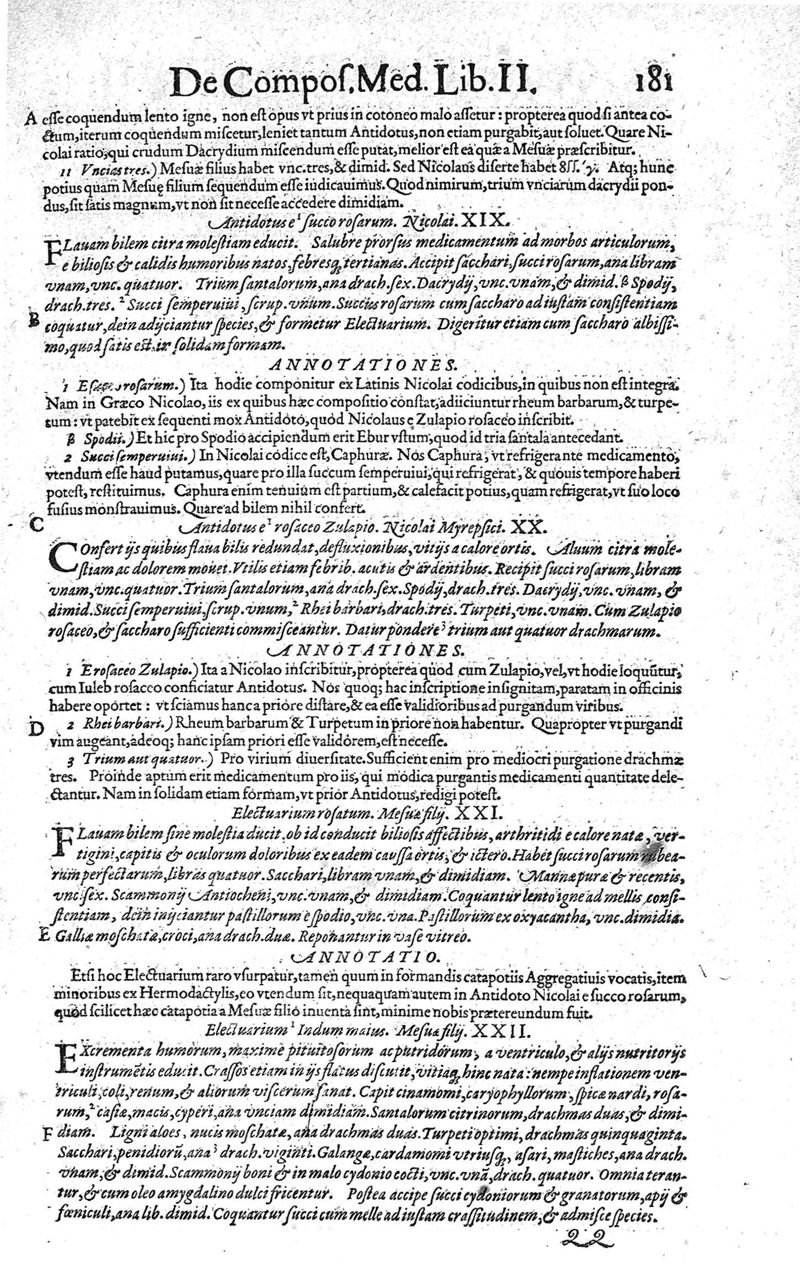 De Compos. Med. Lib. II. 181
A esse coquendum lento igne, non est opus vt prius in cotoneo malo assetur : propterea quod si antea co-
ctum, iterum coquendum miscetur, leniet tantum Antidotus, non etiam purgabit, aut soluet. Quare Ni-
colai ratio, qui crudum Dacrydium miscendum esse putat, melior est ea quæ a Mesuæ præscribitur.
11 Vncias tres.) Mesuæ filius habet vnc. tres, & dimid. Sed Nicolaus diserte habet Atq; hunc
potius quam Mesuę filium sequendum esse iudicauimus. Quod nimirum, trium vnciarum dacrydii pon-
dus, sit satis magnum, vt non sit necesse accedere dimidiam.
Antidotus e 1 succo rosarum. Nicolai. XIX.
FLauam bilem citra molestiam educit. Salubre prorsus medicamentum ad morbos articulorum,
e biliosis & calidis humoribus natos, febresq; tertianas. Accipit sacchari, succi rosarum, ana libram
vnam, vnc. quatuor. Trium santalorum, ana drach. sex. Dacrydij, vnc. vnam, & dimid. β Spodij,
drach. tres. 2 Succi semperuiui, scrup. vnum. Succus rosarum cum saccharo ad iustam consistentiam
B coquatur, dein adijciantur species, & formetur Electuarium. Digeritur etiam cum saccharo albissi-
mo, quod satis est, in solidam formam.
ANNOTATIONES.
1 E succo rosarum.) Ita hodie componitur ex Latinis Nicolai codicibus, in quibus non est integra.
Nam in Græco Nicolao, iis ex quibus hæc compositio constat, adiiciuntur rheum barbarum, & turpe-
tum : vt patebit ex sequenti mox Antidoto, quod Nicolaus e Zulapio rosaceo inscribit.
β Spodii.) Et hic pro Spodio accipiendum erit Ebur vstum, quod id tria santala antecedant.
2 Succi semperuiui.) In Nicolai codice est, Caphuræ. Nos Caphura, vt refrigerante medicamento,
vtendum esse haud putamus, quare pro illa succum semperuiui, qui refrigerat, & quouis tempore haberi
potest, restituimus. Caphura enim tenuium est partium, & calefacit potius, quam refrigerat, vt suo loco
fusius monstrauimus. Quare ad bilem nihil confert.
C Antidotus e 1 rosaceo Zulapio. Nicolai Myrepsici. XX.
COnfert ijs quibus flaua bilis redundat, defluxionibus, vitijs a calore ortis. Aluum citra mole-
stiam ac dolorem mouet. Vtilis etiam febrib. acutis & ardentibus. Recipit succi rosarum, libram
vnam, vnc. quatuor. Trium santalorum, ana drach. sex. Spodij, drach. tres. Dacrydij, vnc. vnam, &
dimid. Succi semperuiui, scrup. vnum, 2 Rhei barbari, drach. tres. Turpeti, vnc. vnam. Cum Zulapio
rosaceo, & saccharo sufficienti commisceantur. Datur pondere 3 trium aut quatuor drachmarum.
ANNOTATIONES.
1 E rosaceo Zulapio.) Ita a Nicolao inscribitur, propterea quod cum Zulapio, vel, vt hodie loquũtur,
cum Iuleb rosacco conficiatur Antidotus. Nos quoq; hac inscriptione insignitam, paratam in officinis
habere oportet : vt sciamus hanc a priore distare, & ea esse validioribus ad purgandum viribus.
D 2 Rhei barbari.) Rheum barbarum & Turpetum in priore non habentur. Quapropter vt purgandi
vim augeant, adeoq; hanc ipsam priori esse validorem, est necesse.
3 Trium aut quatuor.) Pro virium diuersitate. Sufficient enim pro mediocri purgatione drachmæ
tres. Proinde aptum erit medicamentum pro iis, qui modica purgantis medicamenti quantitate dele-
ctantur. Nam in solidam etiam formam, vt prior Antidotus, redigi potest.
Electuarium rosatum. Mesuæ filij. XXI.
FLauam bilem sine molestia ducit, ob id conducit biliosis affectibus, arthritidi e calore natæ, ver-
tigini, capitis & oculorum doloribus ex eadem caussa ortis, & ictero. Habet succi rosarum rubea-
rum perfectarum, libras quatuor. Sacchari, libram vnam, & dimidiam. Mannæ puræ & recentis,
vnc. sex. Scammonij Antiocheni, vnc. vnam, & dimidiam. Coquantur lento igne ad mellis consi-
stentiam, dein inijciantur pastillorum e spodio, vnc. vna. Pastillorum ex oxyacantha, vnc. dimidia.
E Galliæ moschatæ, croci, ana drach. duæ. Reponantur in vase vitreo.
ANNOTATIO.
Etsi hoc Electuarium raro vsurpatur, tamen quum in formandis catapotiis Aggregatiuis vocatis, item
minoribus ex Hermodactylis, eo vtendum sit, nequaquam autem in Antidoto Nicolai e succo rosarum,
quod scilicet hæc catapotia a Mesuæ filio inuenta sint, minime nobis prætereundum fuit.
Electuarium 1 Indum maius. Mesuæ filij. XXII.
EXcrementa humorum, maxime pituitosorum ac putridorum, a ventriculo, & alijs nutritorijs
instrumētis educit. Crassos etiam in ijs flatus discutit, vitiaq; hinc nata : nempe inflationem ven-
triculi, coli, renum, & aliorum viscerum sanat. Capit cinamomi, caryophyllorum, spicæ nardi, rosa-
rum, 2 casiæ, macis, cyperi, ana vnciam dimidiam. Santalorum citrinorum, drachmas duas, & dimi-
F diam. Ligni aloes, nucis moschatæ, ana drachmas duas. Turpeti optimi, drachmas quinquaginta.
Sacchari, penidiorū, ana 3 drach. viginti. Galangæ, cardamomi vtriusq;, asari, mastiches, ana drach.
vnam, & dimid. Scammonij boni & in malo cydonio cocti, vnc. vnā, drach. quatuor. Omnia teran-
tur, & cum oleo amygdalino dulci fricentur. Postea accipe succi cydoniorum & granatorum, apij &
fœniculi, ana lib. dimid. Coquantur succi cum melle ad iustam crassitudinem, & admisce species.